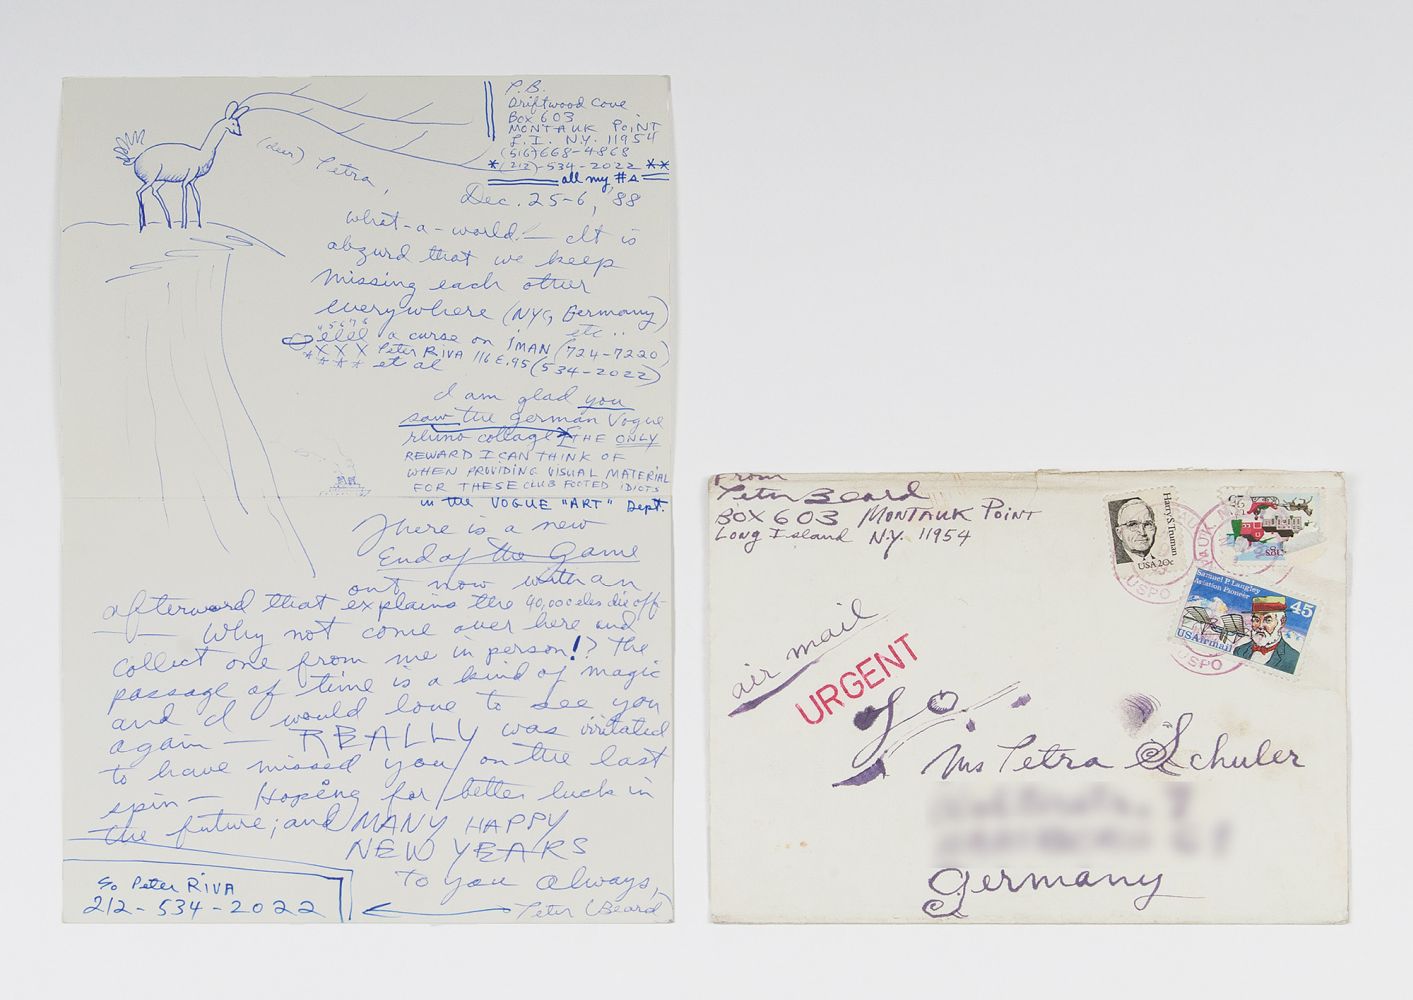 P.B.
Driftwood Cove
Box 603
MONTAUK POINT
L.I. N.Y. 11954
(516) 668-4868
*(212)-534-2022 **
all my #s
(deer) Petra,
Dec. 25-6, '88
what-a-world! — It is
abzurd that we keep
missing each other
everywhere (NYC, Germany)
etc..
a curse on IMAN (724-7220)
XXX Peter RIVA 116 E. 95 (534-2022)
**** et al
I am glad you
saw the german Vogue
rhino collage THE ONLY
REWARD I CAN THINK OF
WHEN PROVIDING VISUAL MATERIAL
FOR THESE CLUB FOOTED IDIOTS
in the VOGUE "ART" Dept.
There is a new
End of the Game
out now with an
afterword that explains the 40,000 eles die off-
— Why not come over here and
collect one from me in person!? The
passage of time is a kind of magic
and I would love to see you
again — REALLY was irritated
to have missed you on the last
spin — Hoping for better luck in
the future; and MANY HAPPY
NEW YEARS
To you always,
Peter (Beard)
c/o Peter RIVA
212-534-2022
From
Peter Beard
BOX 603 MONTAUK POINT
Long Island N.Y. 11954
Harry S. Truman
USA 20c
Samuel P. Langley
Aviation Pioneer
45
USAirmail
USPO
USPO
air mail
URGENT
To:
Ms Petra Schuler
Germany